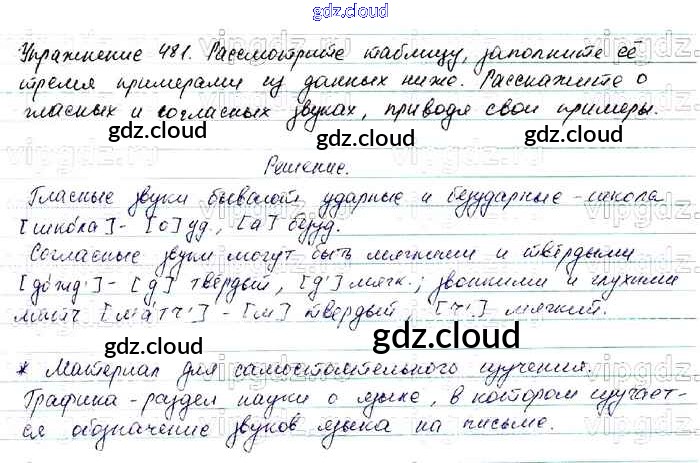 gdz.cloud
Упражнение 481. Рассмотрите таблицу, заполните её
тремя примерами из данных ниже. Расскажите о
гласных и согласных звуках, приводя свои примеры.
gdz.cloud gdz.cloud gdz.cloud
Решение.
Гласные звуки бывают ударные и безударные - школа
[шко́ла] - [о] уд., [а] безуд.
Согласные звуки могут быть мягкими и твёрдыми
[до́жд'] - [д] твёрдый, [д'] мягк.; звонкими и глухими
матч [ма́тч'] - [м] твёрдый, [ч'] мягкий.
gdz.cloud gdz.cloud
* Материал для самостоятельного изучения.
Графика - раздел науки о языке, в котором изучает-
ся обозначение звуков языка на письме.
gdz.cloud gdz.cloud